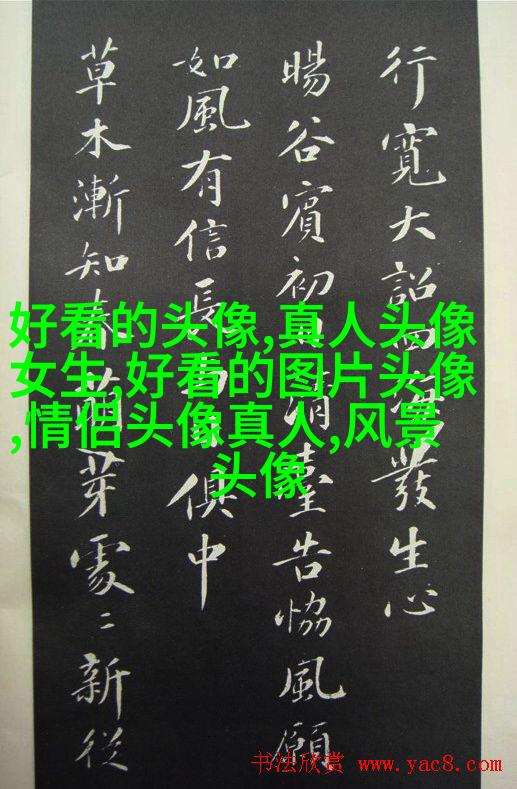 行寬大詔發生心
暘谷賓初日清臺告協風願
如風有信長與日俱中
草木漸知春萌芽處〻新從
好看的头像,真人头像
女生,好看的图片头像
,情侣头像真人,风景
头像
书法欣赏 www.yac8.com